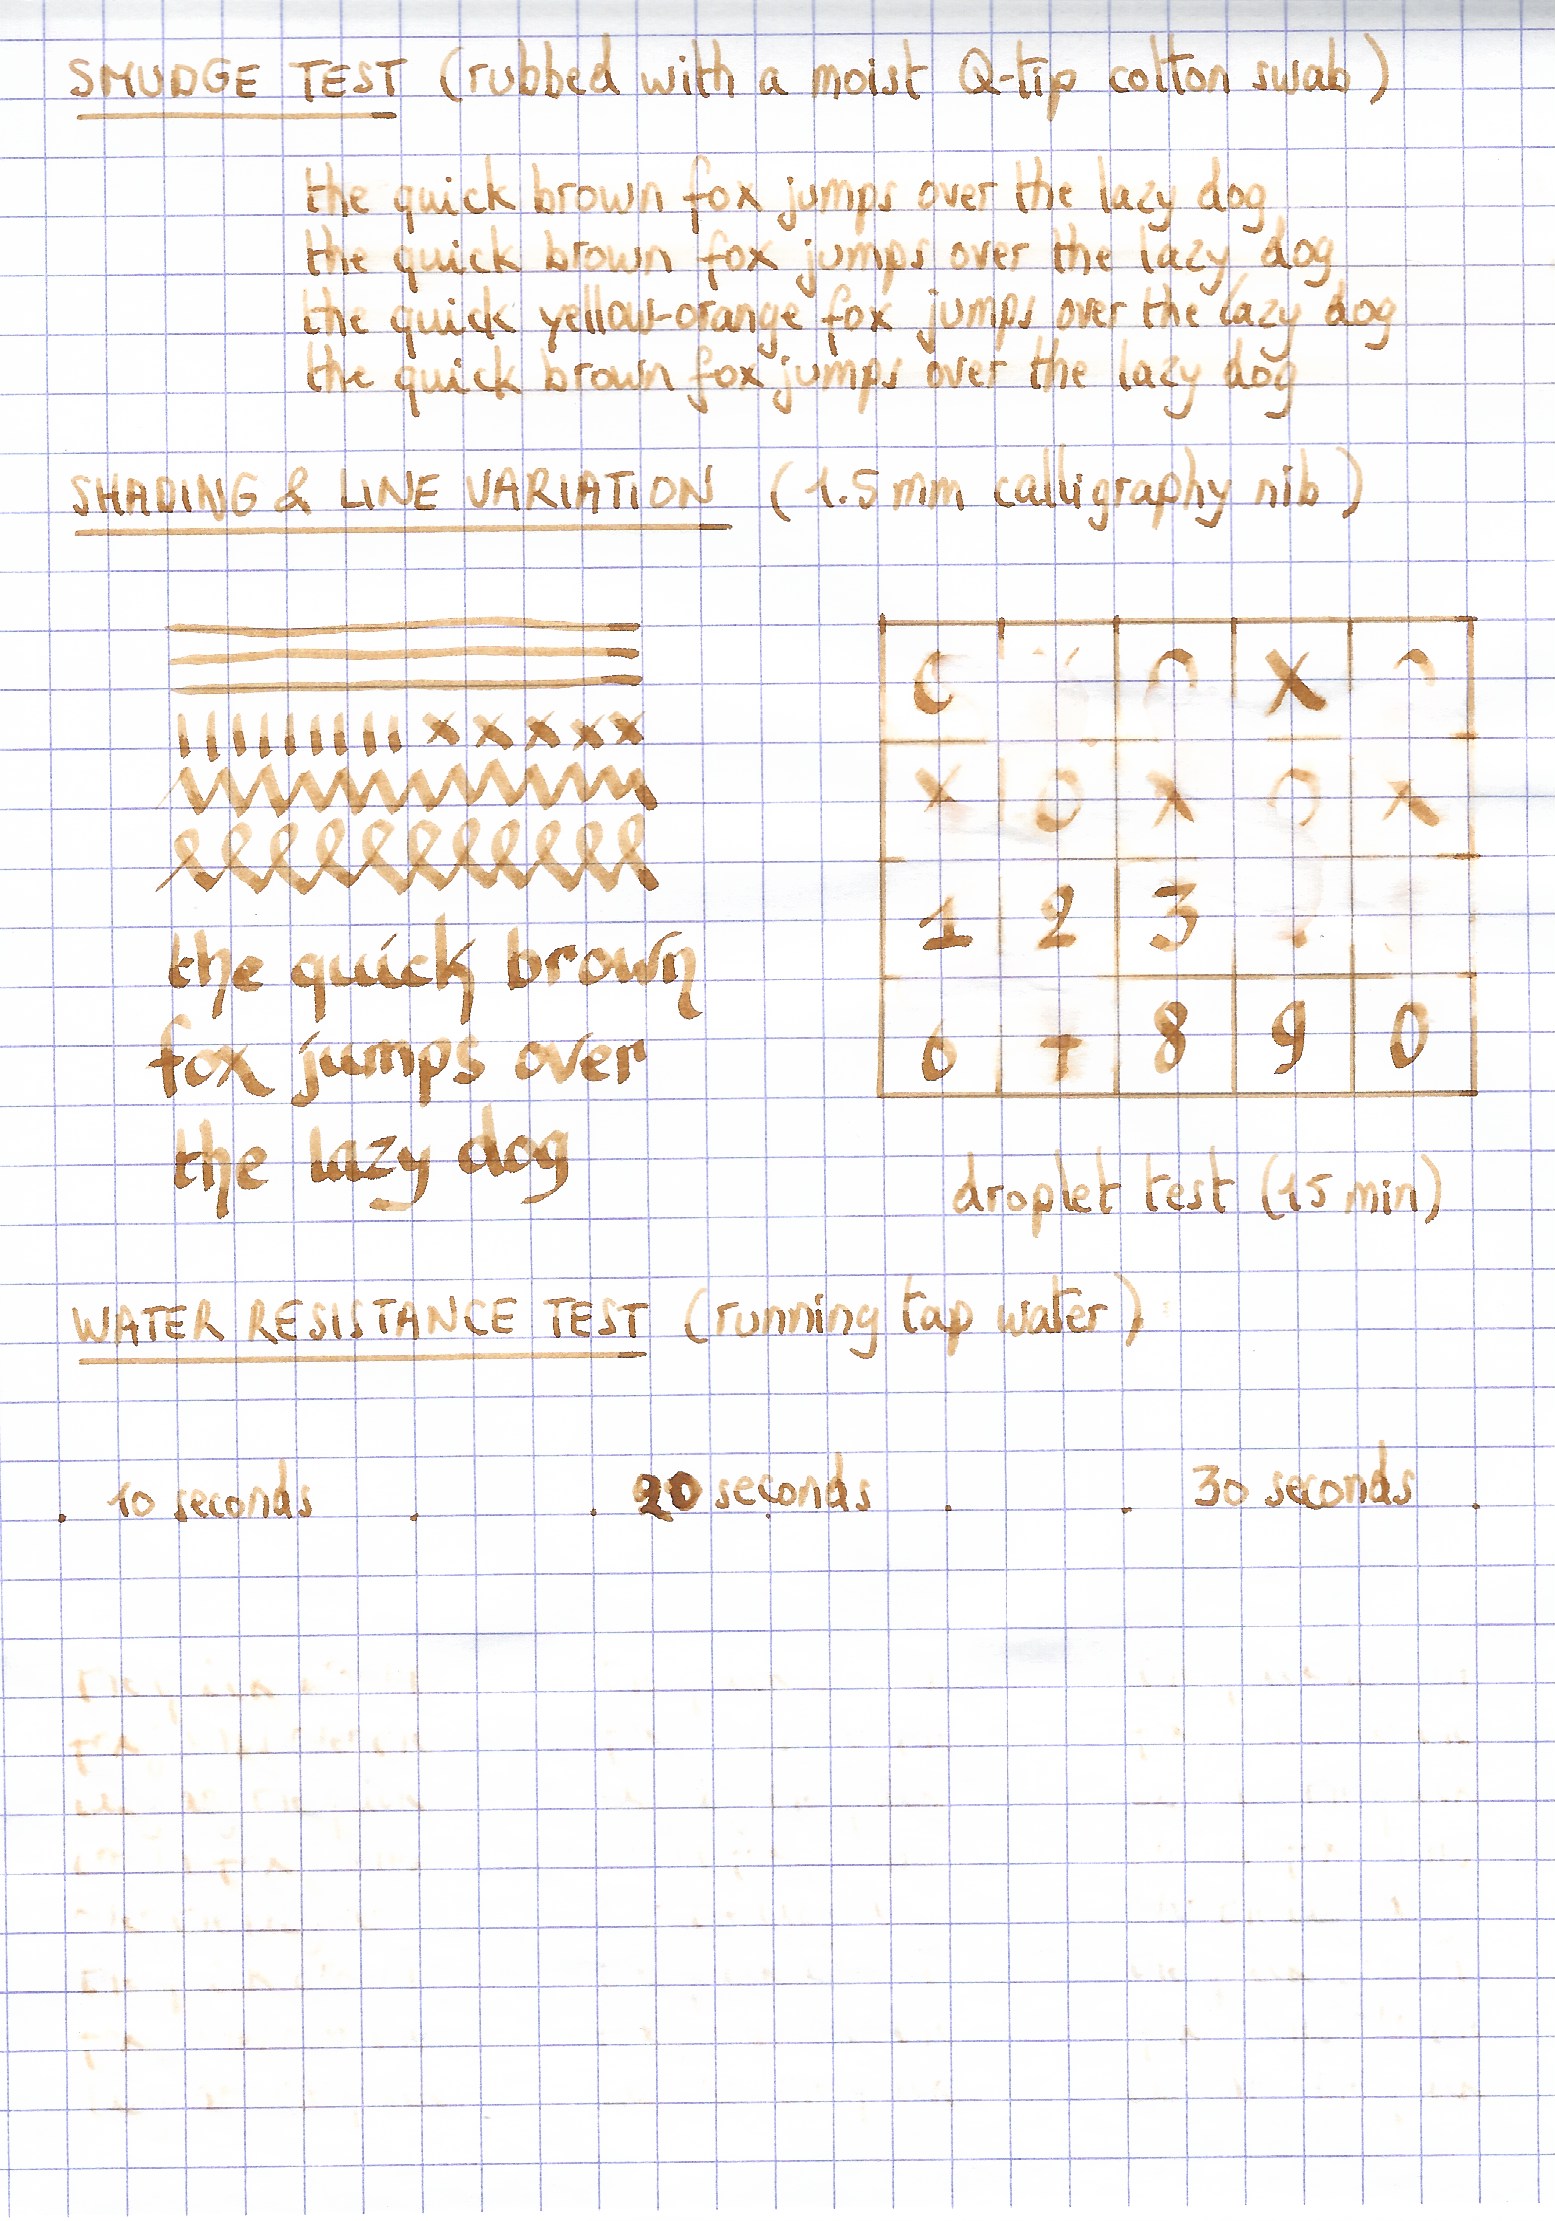 SMUDGE TEST (rubbed with a moist Q-tip cotton swab)
the quick brown fox jumps over the lazy dog
the quick brown fox jumps over the lazy dog
the quick yellow-orange fox jumps over the lazy dog
the quick brown fox jumps over the lazy dog
SHADING & LINE VARIATION (1.5 mm calligraphy nib)
x x x x x
the quick brown
fox jumps over
the lazy dog
X
x o x o x
1 2 3
6 7 8 9 0
droplet test (15 min)
WATER RESISTANCE TEST (running tap water)
10 seconds 20 seconds 30 seconds